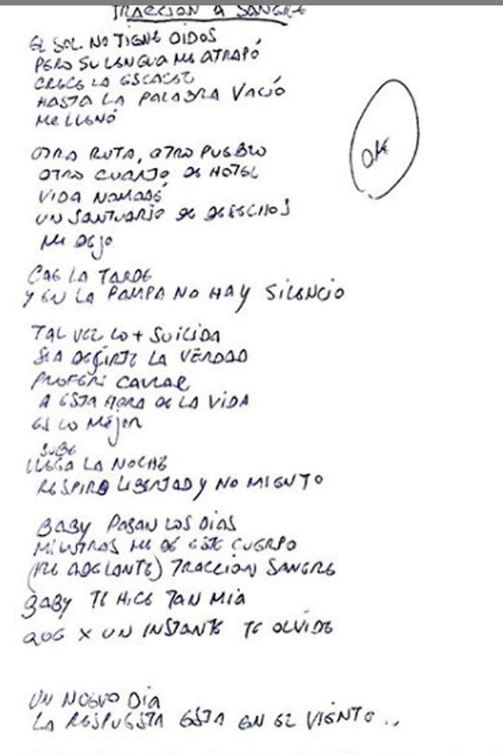 TRACCION A SANGRE
EL SOL NO TIENE OIDOS
PERO SU LENGUA ME ATRAPÓ
CRECE LA ESCASEZ
HASTA LA PALABRA VACIÓ
ME LLENÓ
OTRA RUTA, OTRO PUEBLO
OTRO CUARTO DE HOTEL
VIDA NOMADE
UN SANTUARIO DE DESECHOS
ME DEJO
OK
CAE LA TARDE
Y EN LA PAMPA NO HAY SILENCIO
TAL VEZ LO + SUICIDA
SEA DECIRTE LA VERDAD
PREFERI CALLAR
A ESTA HORA DE LA VIDA
ES LO MEJOR
SUBE
LLEGA LA NOCHE
RESPIRO LIBERTAD Y NO MIENTO
BABY PASAN LOS DIAS
MIENTRAS ME DE ESTE CUERPO
(IRE ADELANTE) TRACCION SANGRE
BABY TE HICE TAN MIA
QUE X UN INSTANTE TE OLVIDE
UN NUEVO DIA
LA RESPUESTA ESTA EN EL VIENTO..